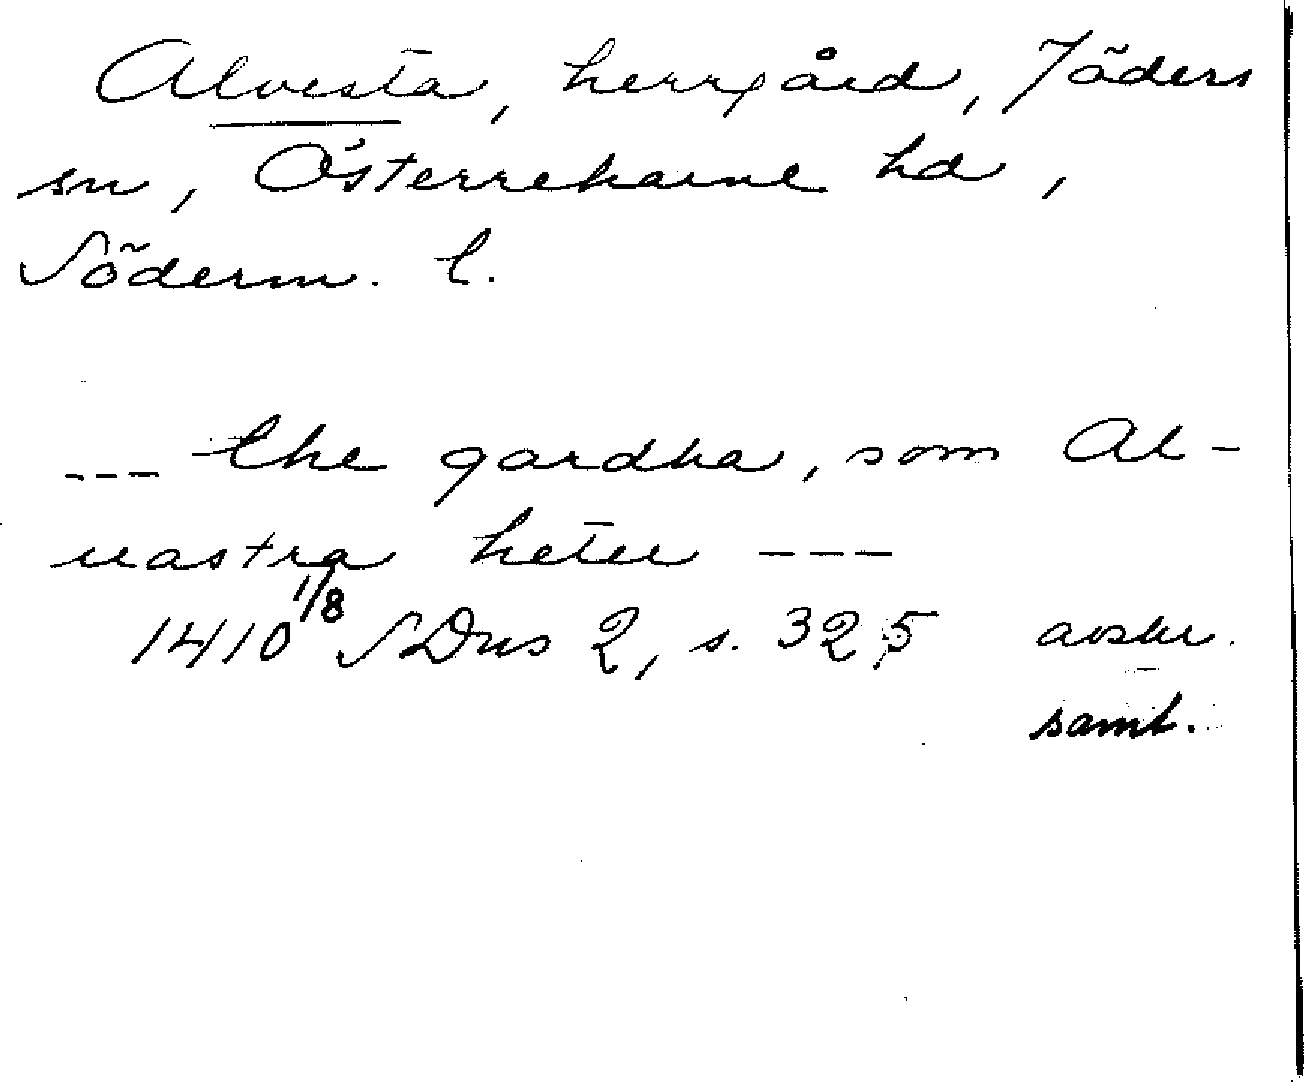 Alvesta, herrgård, Jäders
sn, Österrekarne hd,
Söderm. l.
--- the gardha, som Al-
uastra heter ---
1410 1/8 SDns 2, s. 325 avskr.
samt.